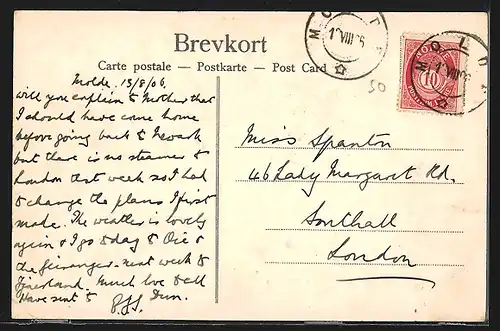 Brevkort
Carte postale — Postkarte — Post Card
MOLDE
MOLDE
10
50
Molde. 13/8/06.
Will you explain to Mother that
I should have come home
before going back to Newark
but there is no steamer to
London that week so I had
to change the plans I first
made. The weather is lovely
again & I go today to Oie &
the Geiranger - next week to
Fjaerland. Much love to all
Have sent to
Miss Spanton
46 Lady Margaret Rd.
Southall
London